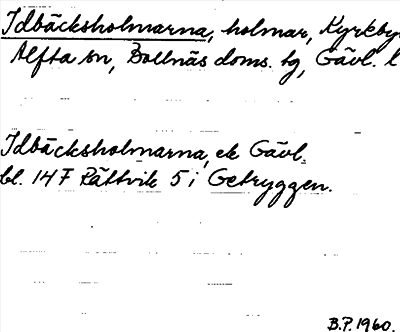 Idbäcksholmarna, holmar, Kyrkby
Alfta sn, Bollnäs doms. tg, Gävl. l
Idbäcksholmarna, ek Gävl.
bl. 14 F Rättvik 5 i Getryggen.
B.P. 1960.